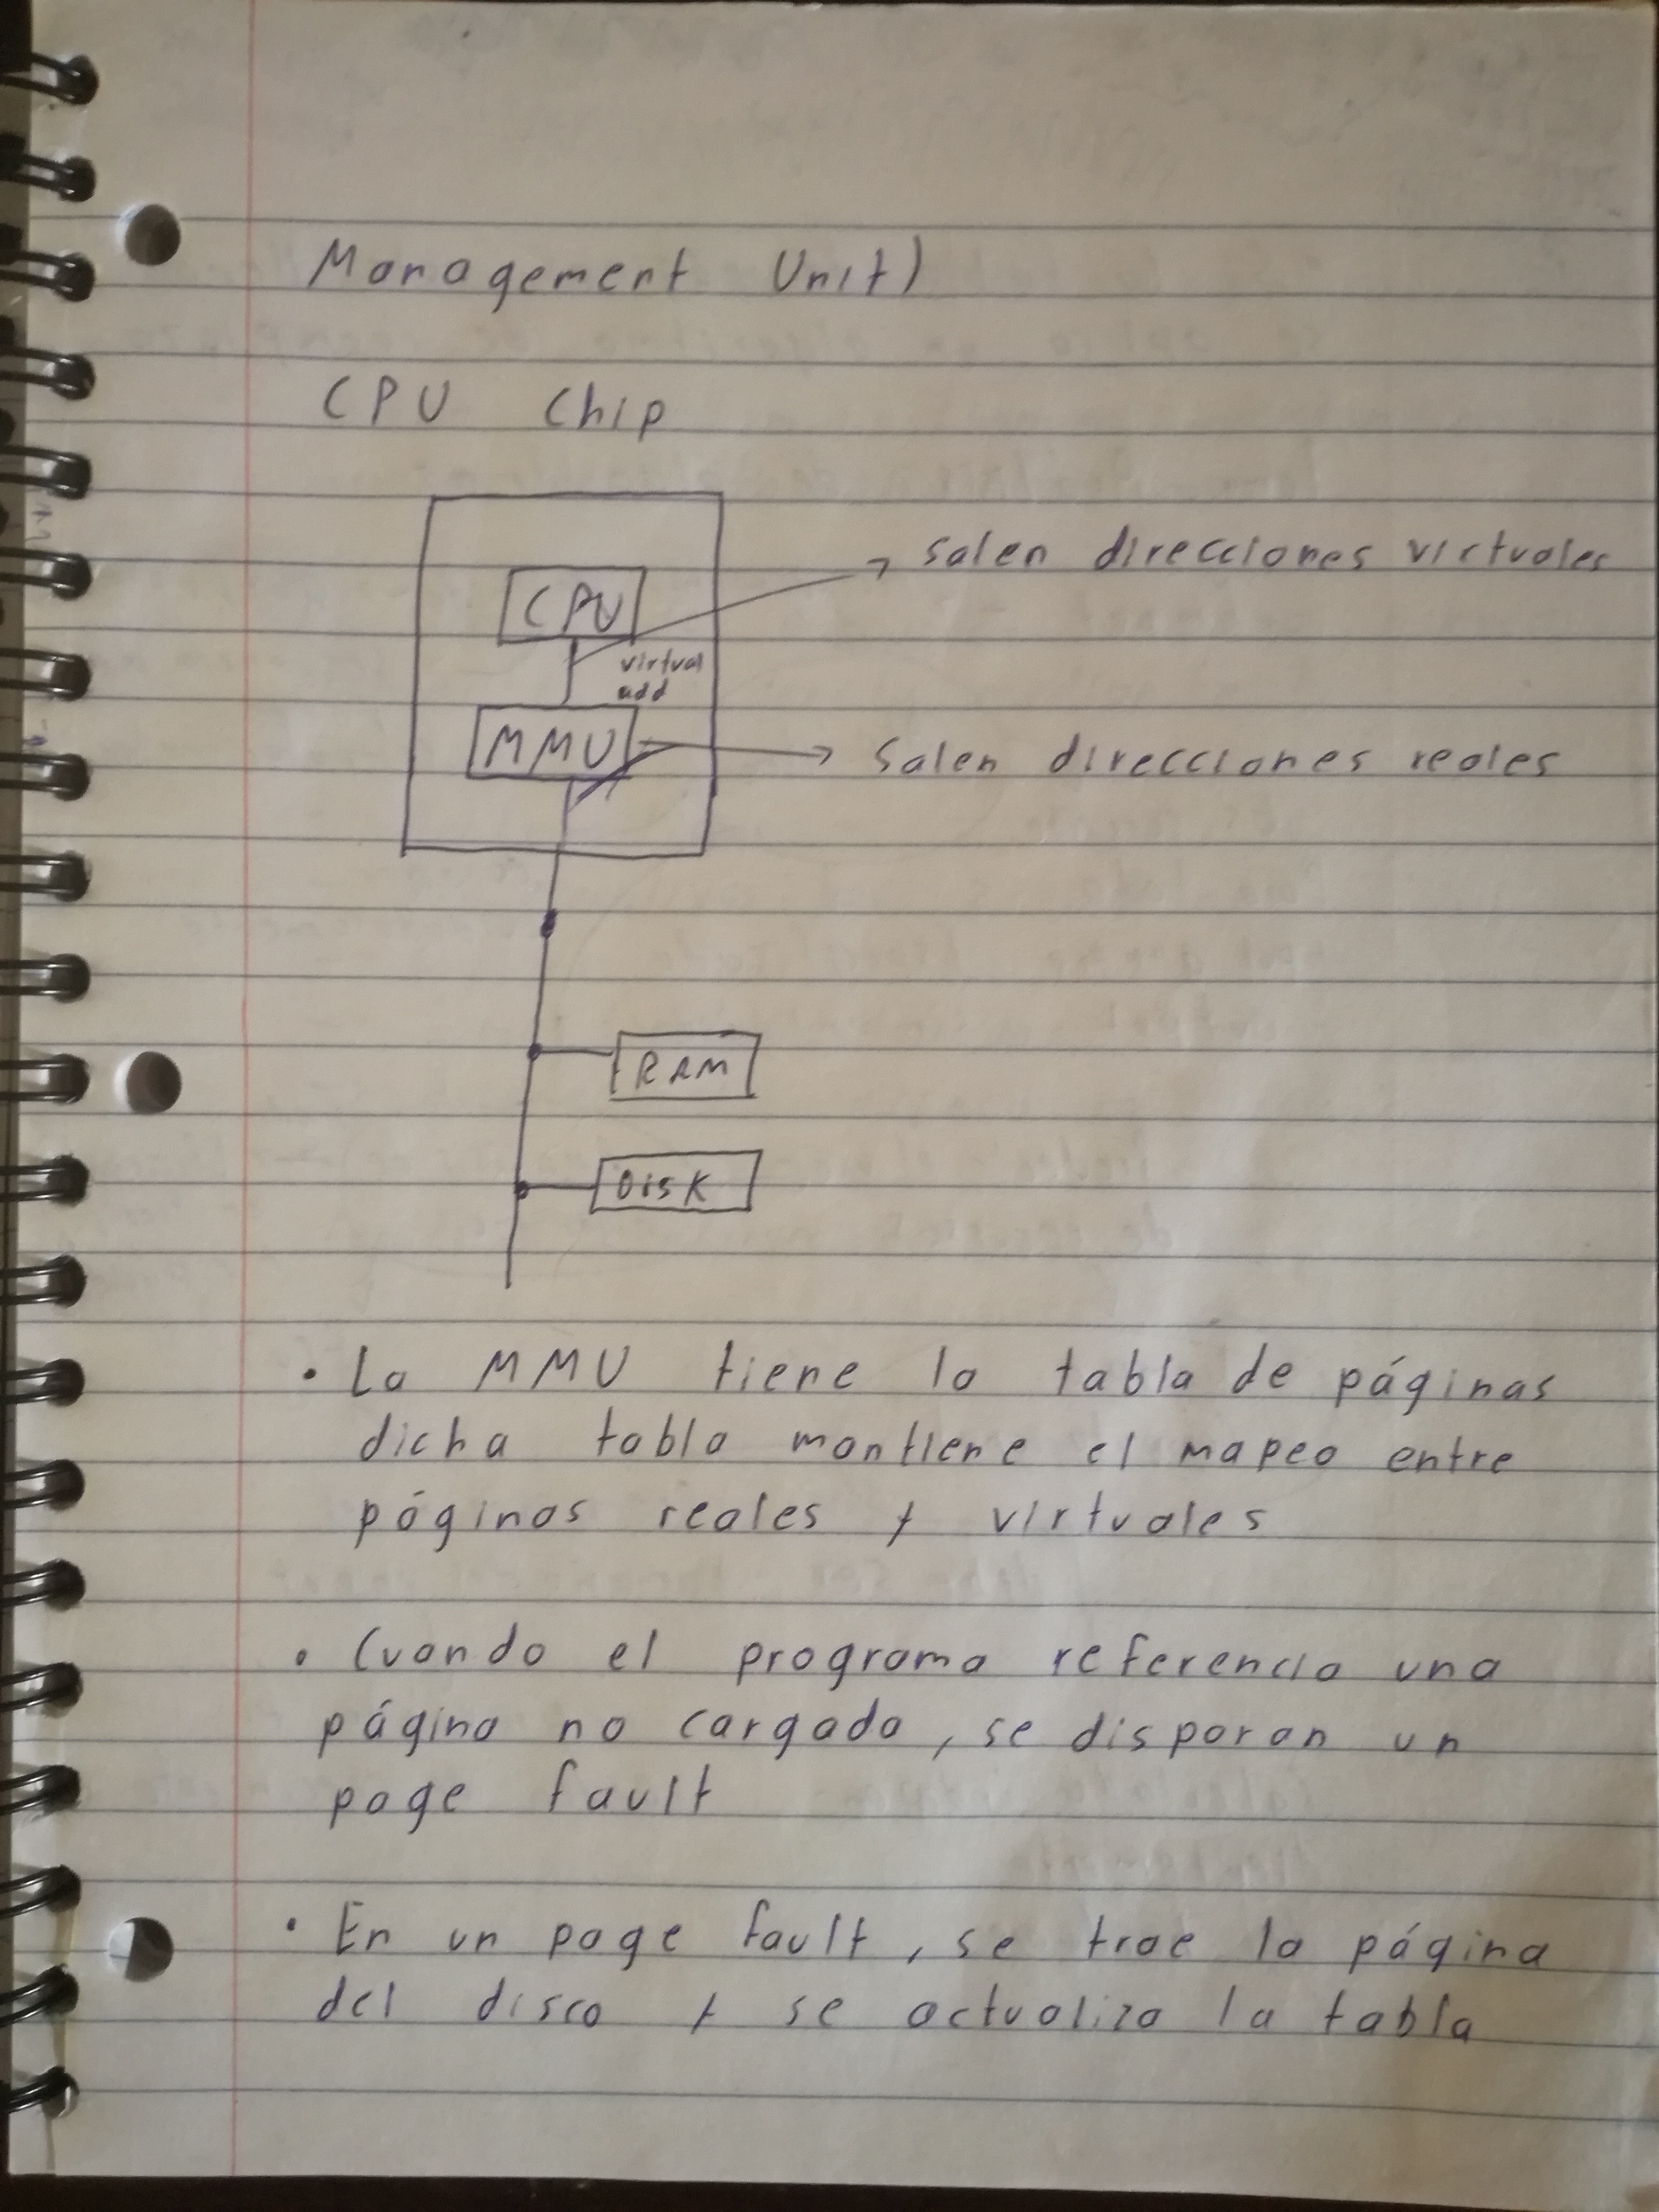 Management Unit)
CPU Chip
CPU
salen direcciones virtuales
virtual
add
MMU
Salen direcciones reales
RAM
Disk
• La MMU tiene la tabla de páginas
dicha tabla mantiene el mapeo entre
páginas reales y virtuales
• Cuando el programa referencia una
página no cargada, se disparan un
page fault
• En un page fault, se trae la página
del disco y se actualiza la tabla